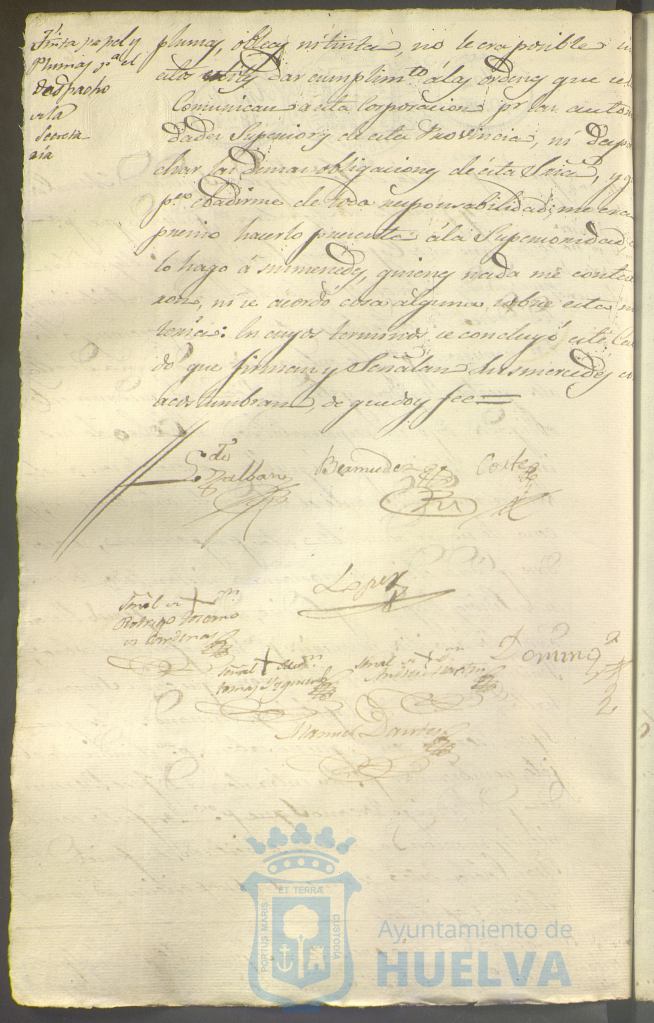 Tinta papel y
Plumas p.ª el
Despacho
de la
Secreta
ría
plumas, obleas ni tinta, no le era posible
dar cumplim.to á las ordenes que se
Comunican a esta Corporacion pr. las autori
dades Superiores de esta Provincia, ni despa
char las demas obligaciones de esta Sría, y q
p.a ebadirme de toda responsabilidad; me era
preciso hacerlo presente á la Superioridad,
lo hago á sus mercedes, quienes nada me contes
taron, ni se acordó cosa alguna sobre esta ma
teria: En cuyos terminos se concluyó este Cavil
do que firman y Señalan sus mercedes
acostumbran de que doy fee=
Bermudez
Cortes
Lopez
Señal de + 
Rodrigo
de Cardenas
Señal +
Señal +
Doming
Manuel
PORTUS MARIS
ET TERRÆ
CUSTODIA
Ayuntamiento de
HUELVA